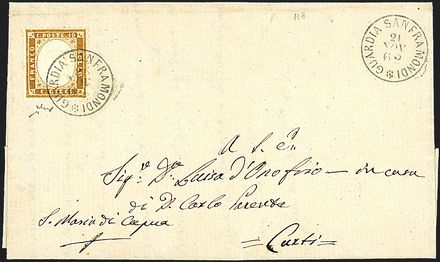 C. POSTE 10
FRANCO
BOLLO
C. DIECI
GUARDIA SANFRAMONDI
GUARDIA SANFRAMONDI
21
NOV
A S. E.
Sig.ª D.ª Luisa D'Onofrio — in casa
di D. Carlo
S. Maria di Capua
Curti